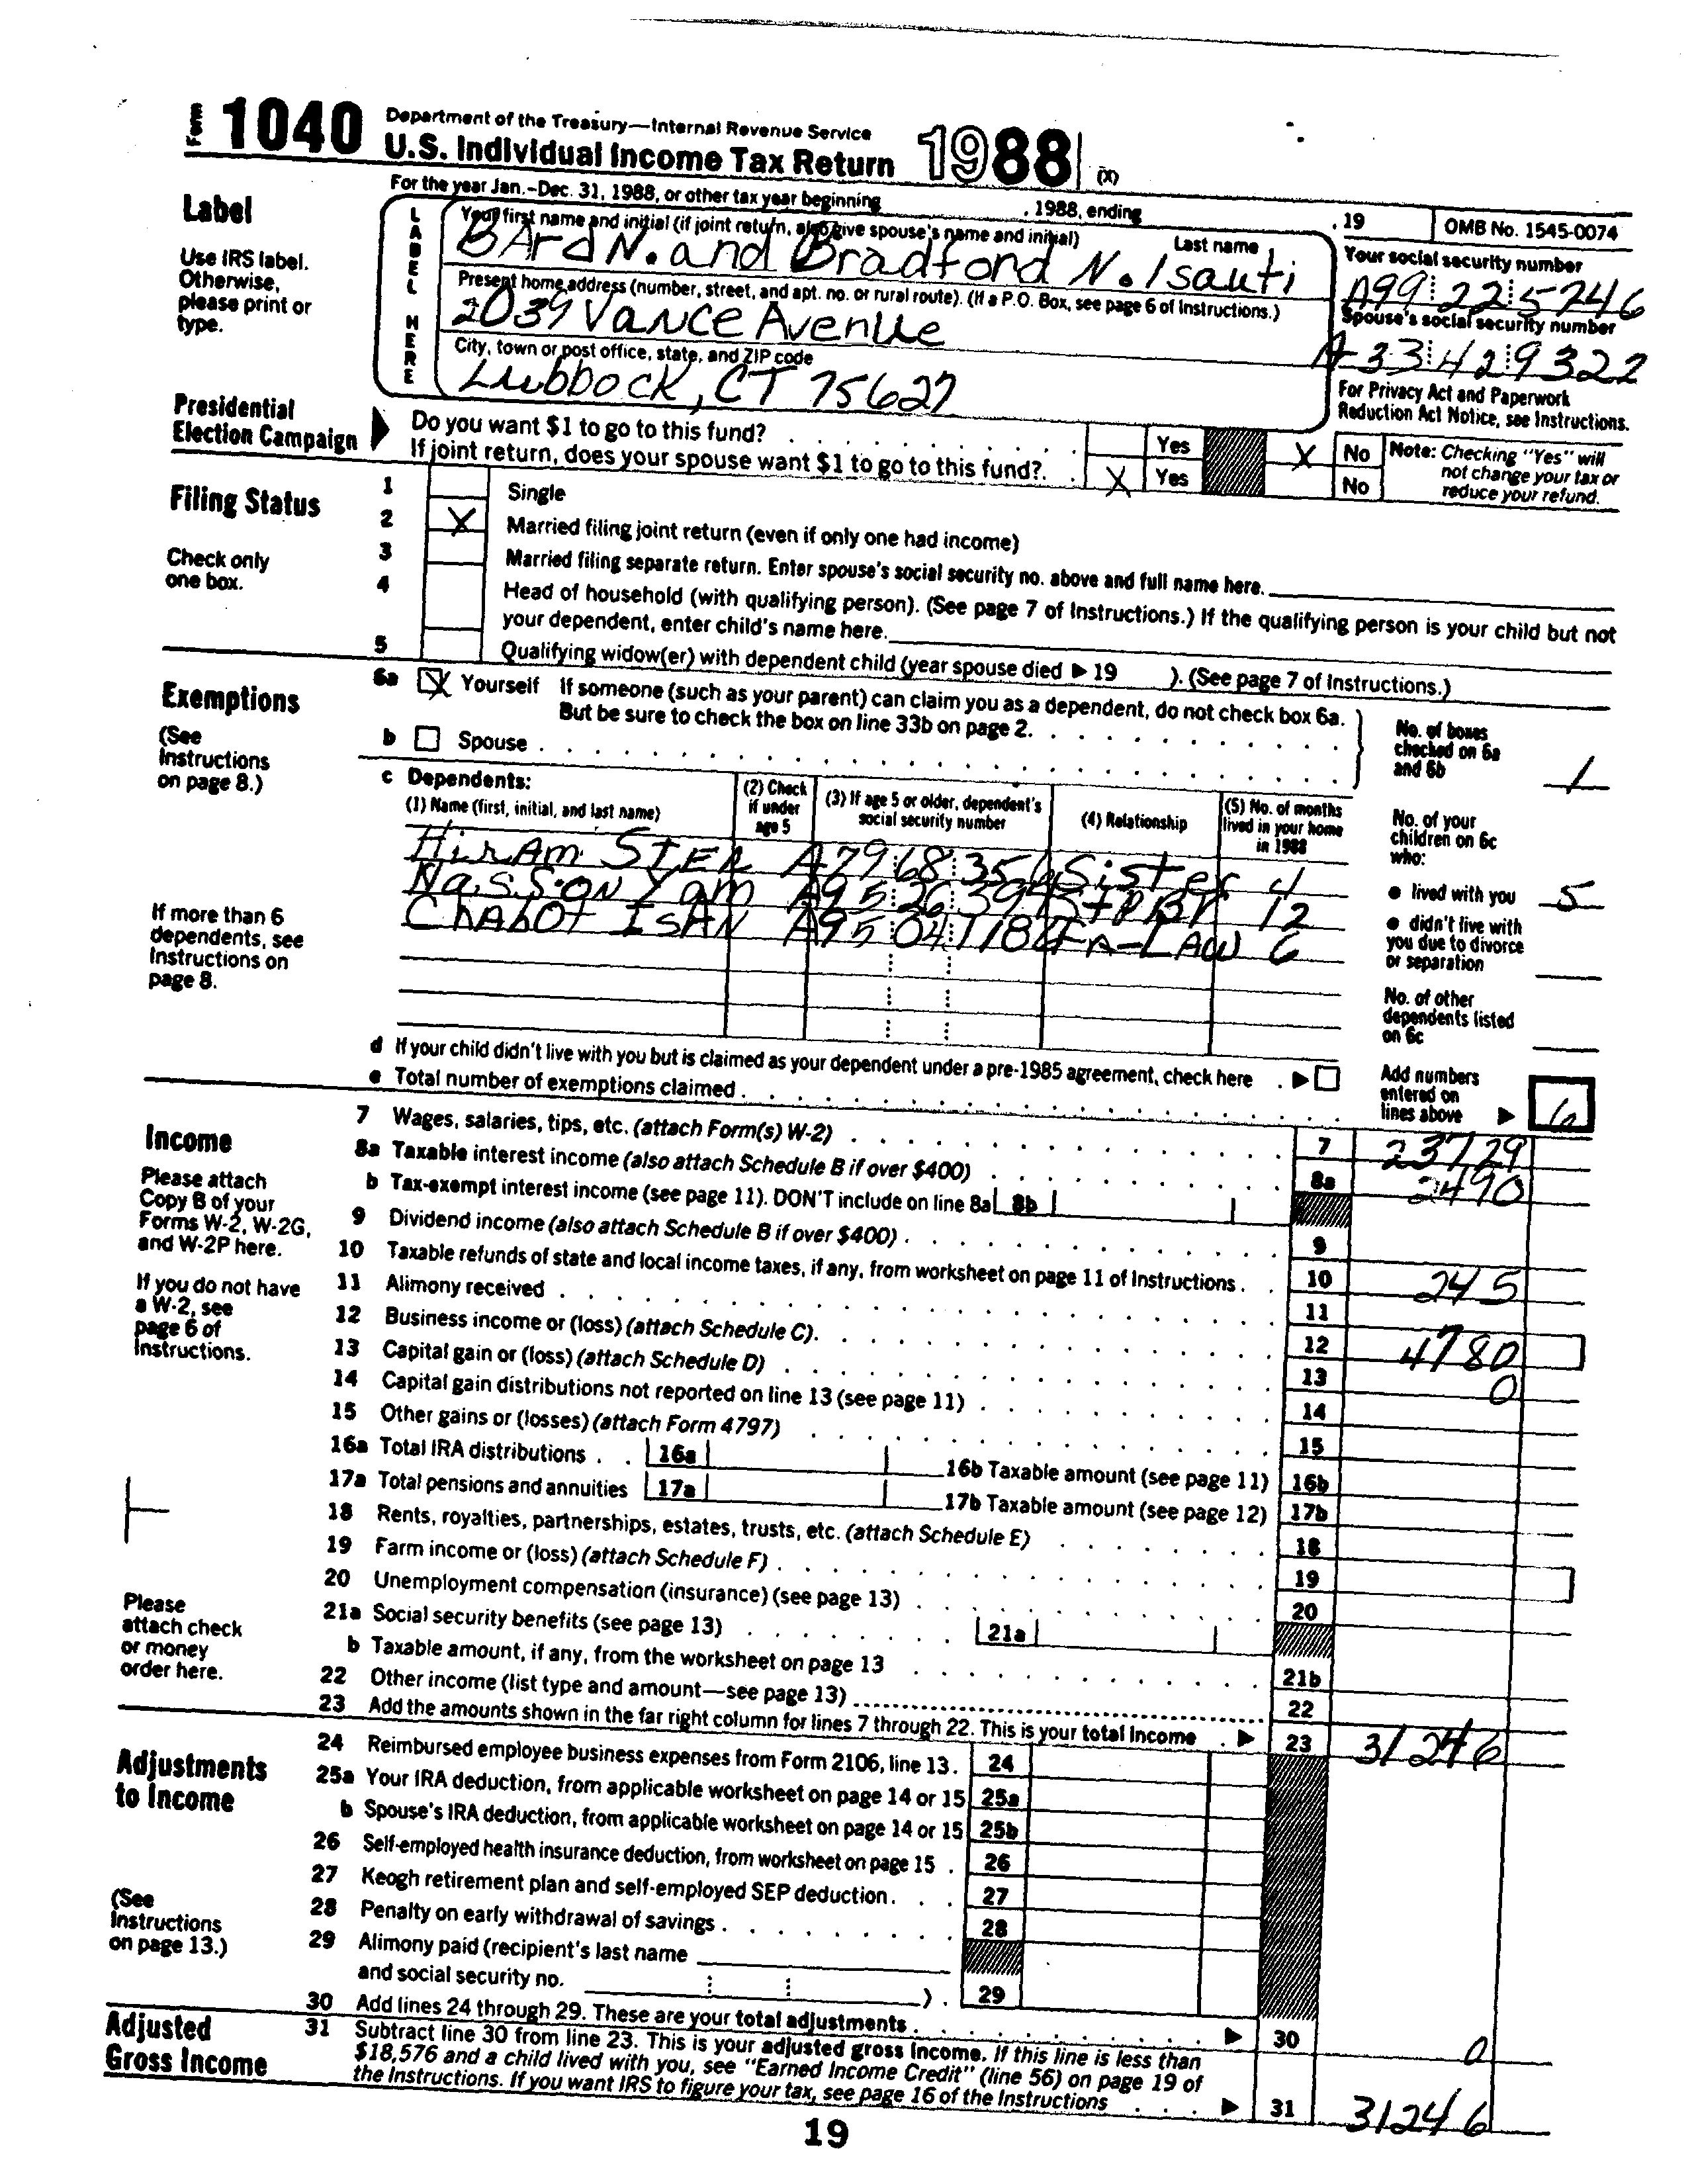 Form 1040 Department of the Treasury—Internal Revenue Service
U.S. Individual Income Tax Return 1988 (X)
For the year Jan.-Dec. 31, 1988, or other tax year beginning , 1988, ending , 19 OMB No. 1545-0074
Label
Use IRS label. Otherwise, please print or type.
LABEL HERE
Your first name and initial (if joint return, also give spouse's name and initial) Last name
BArd N. and Bradford N. Isauti
Your social security number
A99 22 5746
Present home address (number, street, and apt. no. or rural route). (If a P.O. Box, see page 6 of Instructions.)
2039 Vance Avenue
Spouse's social security number
A-33 42 9322
City, town or post office, state, and ZIP code
Lubbock, CT 75627
For Privacy Act and Paperwork Reduction Act Notice, see Instructions.
Presidential Election Campaign
Do you want $1 to go to this fund? Yes X No
If joint return, does your spouse want $1 to go to this fund? X Yes No
Note: Checking "Yes" will not change your tax or reduce your refund.
Filing Status
Check only one box.
1 Single
2 X Married filing joint return (even if only one had income)
3 Married filing separate return. Enter spouse's social security no. above and full name here.
4 Head of household (with qualifying person). (See page 7 of Instructions.) If the qualifying person is your child but not your dependent, enter child's name here.
5 Qualifying widow(er) with dependent child (year spouse died ▶ 19 ). (See page 7 of Instructions.)
Exemptions
(See Instructions on page 8.)
6a X Yourself If someone (such as your parent) can claim you as a dependent, do not check box 6a.
But be sure to check the box on line 33b on page 2.
b Spouse
No. of boxes checked on 6a and 6b 1
c Dependents:
(1) Name (first, initial, and last name) (2) Check if under age 5 (3) If age 5 or older, dependent's social security number (4) Relationship (5) No. of months lived in your home in 1988
HirAm STER A79 68 356 Sister 4
A95 26 12
Chabot ISAN A95 04 In-LAW 6
If more than 6 dependents, see Instructions on page 8.
No. of your children on 6c who:
● lived with you 5
● didn't live with you due to divorce or separation
No. of other dependents listed on 6c
d If your child didn't live with you but is claimed as your dependent under a pre-1985 agreement, check here ▶
e Total number of exemptions claimed
Add numbers entered on lines above ▶ 6
Income
Please attach Copy B of your Forms W-2, W-2G, and W-2P here.
If you do not have a W-2, see page 6 of Instructions.
Please attach check or money order here.
7 Wages, salaries, tips, etc. (attach Form(s) W-2) 7 23729
8a Taxable interest income (also attach Schedule B if over $400) 8a 2490
b Tax-exempt interest income (see page 11). DON'T include on line 8a 8b
9 Dividend income (also attach Schedule B if over $400) 9
10 Taxable refunds of state and local income taxes, if any, from worksheet on page 11 of Instructions 10 245
11 Alimony received 11
12 Business income or (loss) (attach Schedule C) 12 4780
13 Capital gain or (loss) (attach Schedule D) 13 0
14 Capital gain distributions not reported on line 13 (see page 11) 14
15 Other gains or (losses) (attach Form 4797) 15
16a Total IRA distributions 16a 16b Taxable amount (see page 11) 16b
17a Total pensions and annuities 17a 17b Taxable amount (see page 12) 17b
18 Rents, royalties, partnerships, estates, trusts, etc. (attach Schedule E) 18
19 Farm income or (loss) (attach Schedule F) 19
20 Unemployment compensation (insurance) (see page 13) 20
21a Social security benefits (see page 13) 21a
b Taxable amount, if any, from the worksheet on page 13 21b
22 Other income (list type and amount—see page 13) 22
23 Add the amounts shown in the far right column for lines 7 through 22. This is your total income ▶ 23 31246
Adjustments to Income
(See Instructions on page 13.)
24 Reimbursed employee business expenses from Form 2106, line 13. 24
25a Your IRA deduction, from applicable worksheet on page 14 or 15 25a
b Spouse's IRA deduction, from applicable worksheet on page 14 or 15 25b
26 Self-employed health insurance deduction, from worksheet on page 15 26
27 Keogh retirement plan and self-employed SEP deduction 27
28 Penalty on early withdrawal of savings 28
29 Alimony paid (recipient's last name
and social security no. ) 29
30 Add lines 24 through 29. These are your total adjustments ▶ 30 0
Adjusted Gross Income
31 Subtract line 30 from line 23. This is your adjusted gross income. If this line is less than $18,576 and a child lived with you, see "Earned Income Credit" (line 56) on page 19 of the Instructions. If you want IRS to figure your tax, see page 16 of the Instructions ▶ 31 31246
19